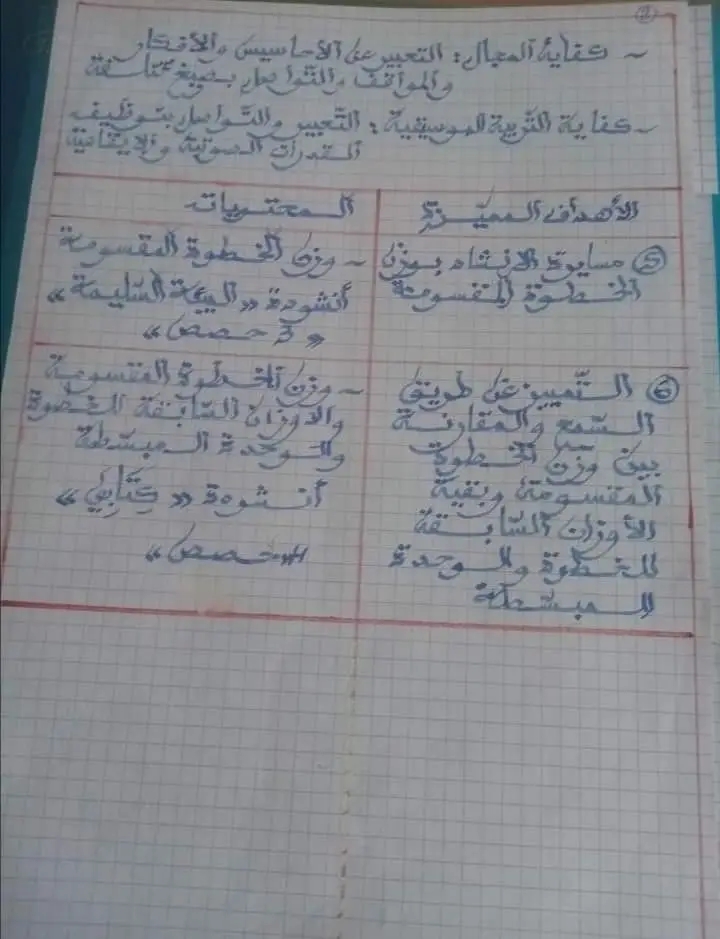 2
~ كفاية المجال: التعبير عن الأحاسيس والأفكار
والمواقف والتواصل بصيغ مختلفة
~ كفاية التربية الموسيقية: التعبير والتواصل بتوظيف
المقدرات الصوتية والإيقاعية
الأهداف المميزة
المحتويات
5 مسايرة الانشاد بوزن
الخطوة المقسومة
~ وزن الخطوة المقسومة
أنشودة «البيئة السليمة»
« 3 حصص »
6 التمييز عن طريق
السمع والمقارنة
بين وزن الخطوة
المقسومة وبقية
الأوزان السابقة
للخطوة والوحدة
المبسطة
~ وزن الخطوة المقسومة
والأوزان السابقة للخطوة
والوحدة المبسطة
أنشودة « كتابي »
حصص»